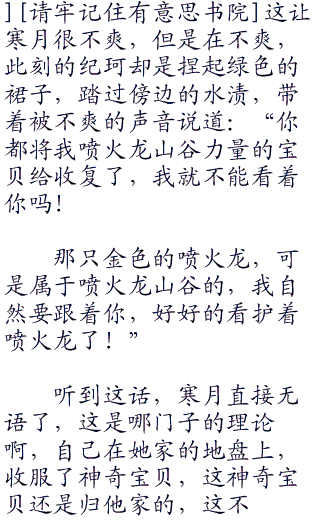 ][请牢记住有意思书院]这让
寒月很不爽，但是在不爽，
此刻的纪珂却是捏起绿色的
裙子，踏过傍边的水渍，带
着被不爽的声音说道：“你
都将我喷火龙山谷力量的宝
贝给收复了，我就不能看着
你吗！
那只金色的喷火龙，可
是属于喷火龙山谷的，我自
然要跟着你，好好的看护着
喷火龙了！”
听到这话，寒月直接无
语了，这是哪门子的理论
啊，自己在她家的地盘上，
收服了神奇宝贝，这神奇宝
贝还是归他家的，这不